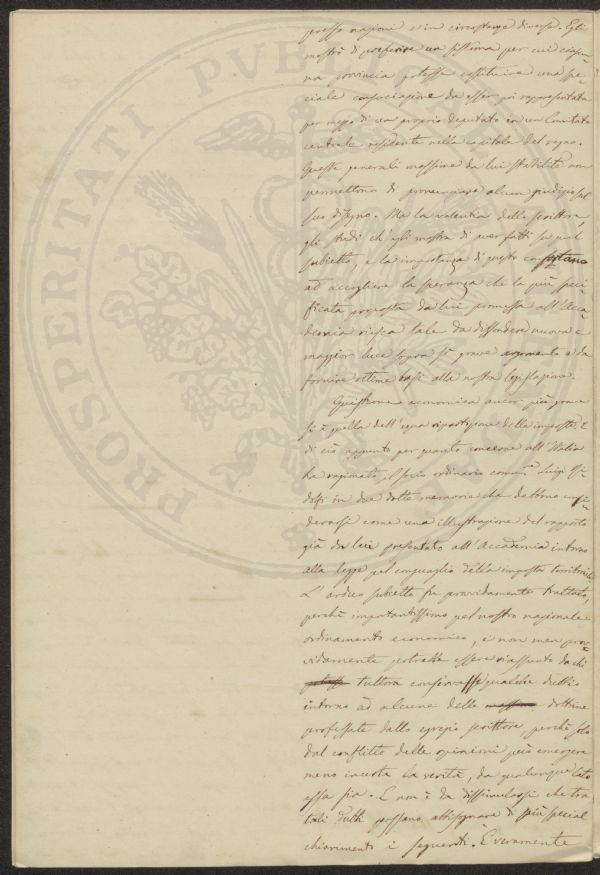 presso nazioni e in circostanze diverse. Egli
mostrò di preferire un sistema per cui ciascu-
na provincia potesse costituire una spe-
ciale consociazione da esser poi rappresentata
per mezzo di un proprio deputato in un Comitato
centrale residente nella capitale del regno.
Queste generali massime da lui stabilite non
permettono di pronunciare alcun giudizio sul
suo disegno. Ma la valentia dello scrittore,
gli studi ch'egli mostra di aver fatti su quel
subietto, e la importanza di questo confortano
ad accogliere la speranza che la più speci
ficata proposta da lui promessa all'Acca
demia riesca tale da diffondere nuova e
maggior luce sopra sì grave argomento e da
fornire ottime basi alla nostra legislazione.
Quistione economica ancor più grave
si è quella dell'equa ripartizione delle imposte. E
di ciò appunto per quanto concerne all'Italia
ha ragionato il socio ordinario comm. Luigi
in due dotte memorie che debbono consi-
derarsi come una illustrazione del rapporto
già da lui presentato all'Accademia intorno
alla legge pel conguaglio della imposta territoriale.
L'arduo subietto fu provvidamente trattato,
perchè importantissimo pel nostro nazionale
ordinamento economico, e non men prov-
vidamente potrebbe essere riassunto da chi
potesse tuttora conservasse qualche dubbio
intorno ad alcune delle massime dottrine
professate dallo egregio scrittore, perchè solo
dal conflitto delle opinioni può emergere
meno incerta la verità, da qualunque lato
essa sia. E non è da dissimularsi che tra
tali dubbi possano abbisognare di più special
chiarimento i seguenti. È veramente
PROSPERITATI PVBLICAE